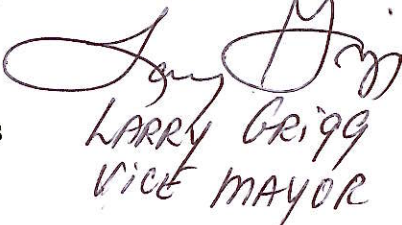 Larry Grigg
LARRY GRIGG
VICE MAYOR